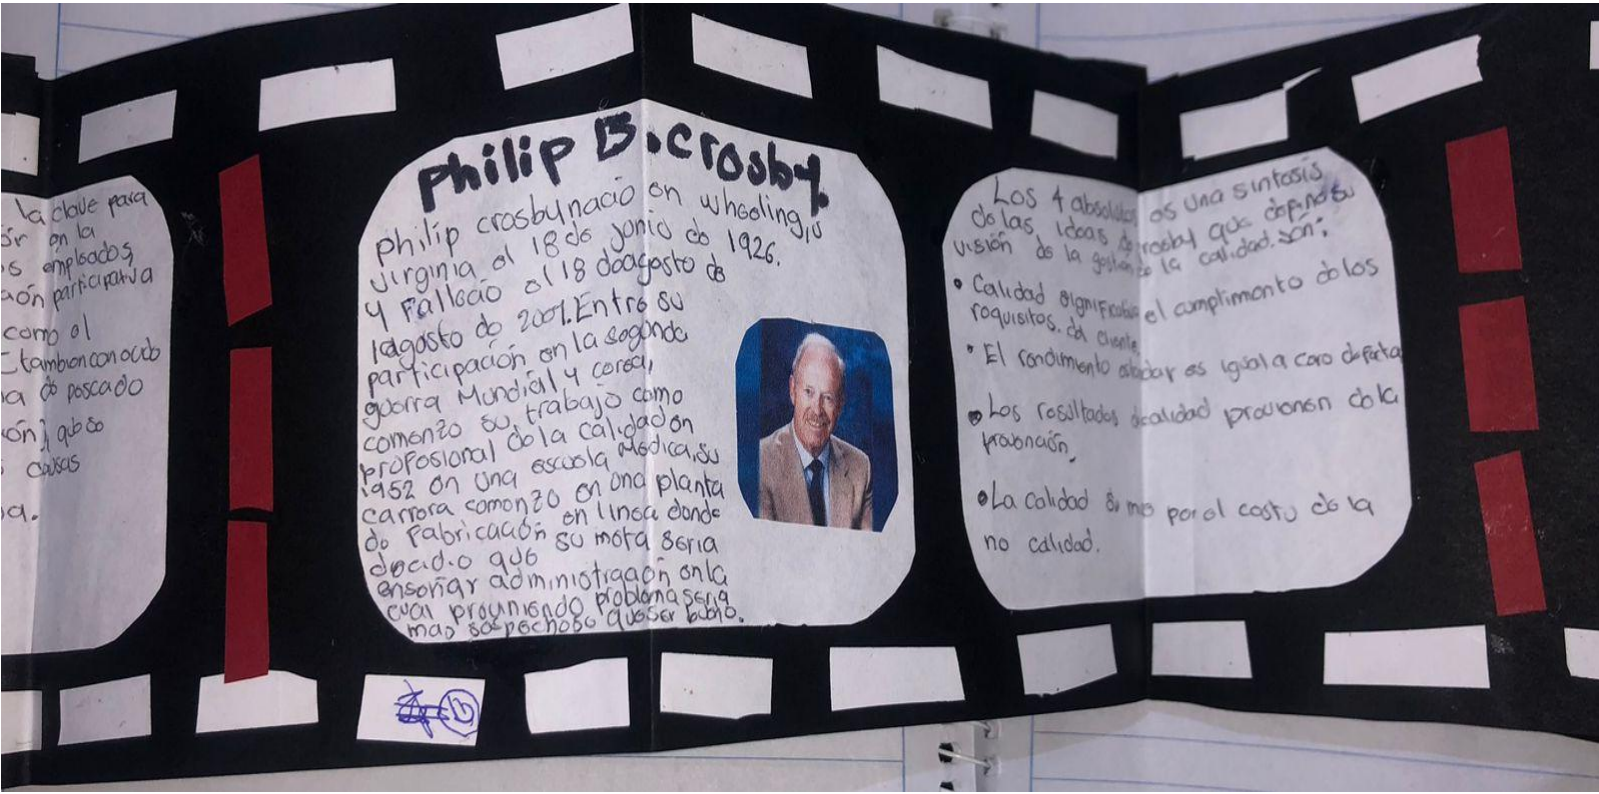 la clave para
ór en la
s empleados,
aón participativa
como el
tambenconocido
a de pescado
ón), que se
causas
a.
Philip B. Crosby.
philip crosby nació en wheeling,
virginia el 18 de junio de 1926.
y Falleció el 18 deagosto de
1agosto de 2001. Entre su
participación en la segunda
guerra Mundial y corea,
comenzo su trabajo como
profesional de la calidad en
1952 en una escuela Medica, su
carrera comenzo en una planta
de Fabricación en linea donde
decidio que su meta seria
enseñar administración en la
cual previniendo problema seria
mas sospechoso que ser bueno.
Los 4 absolutos es una sintesis
de las ideas de crosby que define su
visión de la gestion de la calidad. són:
• Calidad significa el cumplimento de los
requisitos. del cliente.
• El rendimento estadar es igual a cero defecta
• Los resultados de calidad provienen de la
prevención.
• La calidad se mide por el costo de la
no calidad.